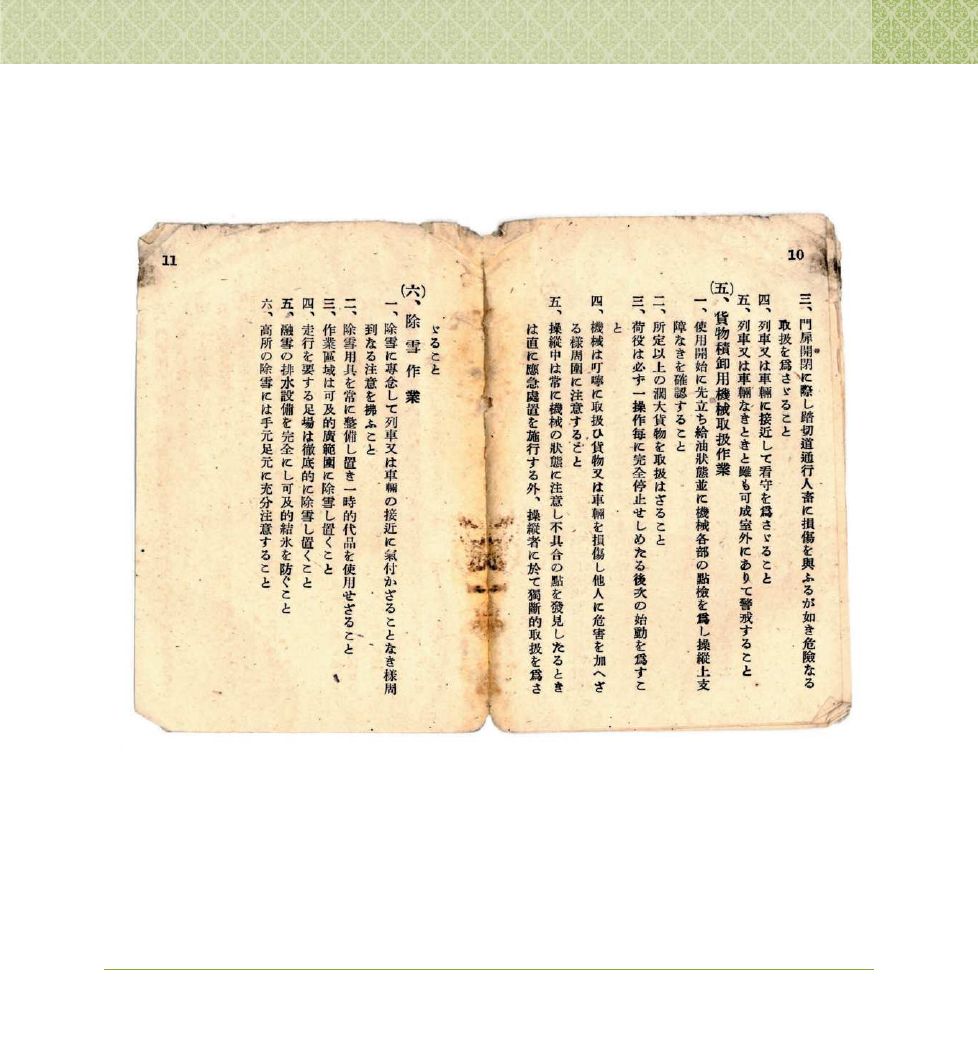 10
三、門扉開閉に際し踏切道通行人畜に損傷を與ふるが如き危險なる
取扱を爲さゞること
四、列車又は車輛に接近して看守を爲さゞること
五、列車又は車輛なきときと雖も可成室外にありて警戒すること
(五)、貨物積卸用機械取扱作業
一、使用開始に先立ち給油狀態並に機械各部の點檢を爲し操縱上支
障なきを確認すること
二、所定以上の濶大貨物を取扱はざること
三、荷役は必ず一操作每に完全停止せしめたる後次の始動を爲すこ
と
四、機械は叮嚀に取扱ひ貨物又は車輛を損傷し他人に危害を加へざ
る樣周圍に注意すること
五、操縱中は常に機械の狀態に注意し不具合の點を發見したるとき
は直に應急處置を施行する外、操縱者に於て獨斷的取扱を爲さ
11
ゞること
(六)、除雪作業
一、除雪に專念して列車又は車輛の接近に氣付かざることなき樣周
到なる注意を拂ふこと
二、除雪用具を常に整備し置き一時的代品を使用せざること
三、作業區域は可及的廣範圍に除雪し置くこと
四、走行を要する足場は徹底的に除雪し置くこと
五、融雪の排水設備を完全にし可及的結氷を防ぐこと
六、高所の除雪には手元足元に充分注意すること